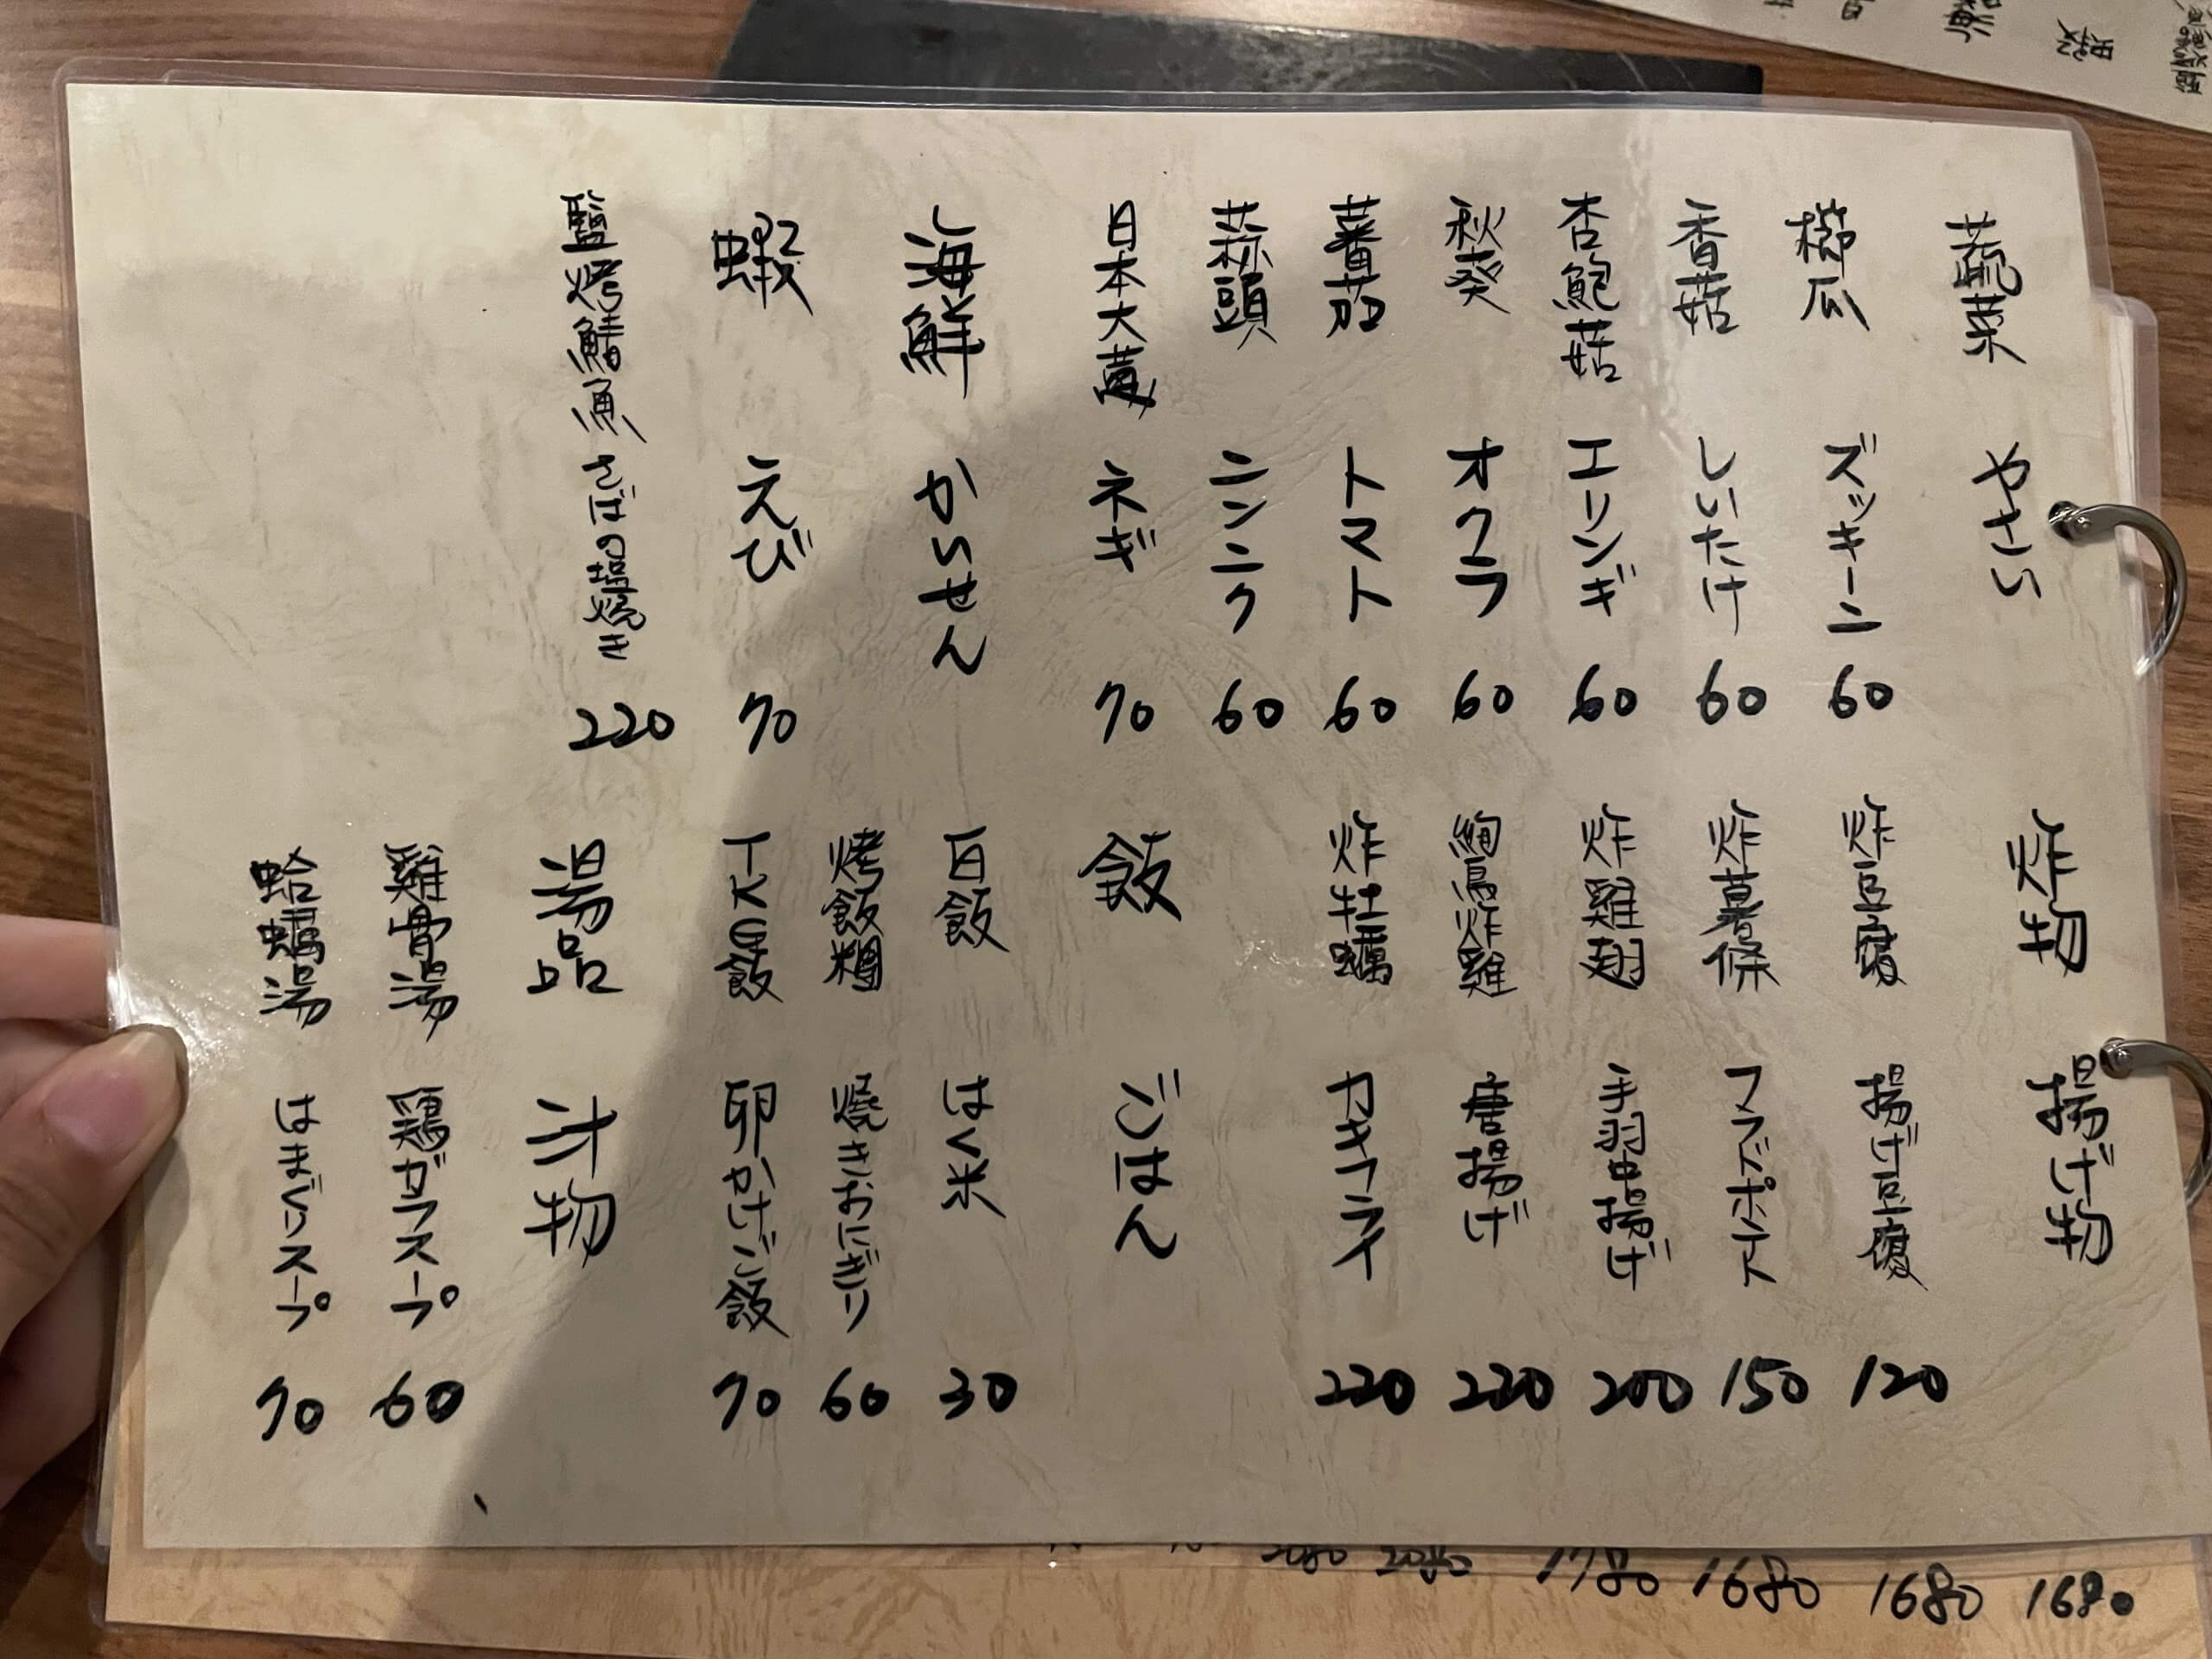 蔬菜 やさい
櫛瓜 ズッキーニ 60
香菇 しいたけ 60
杏鮑菇 エリンギ 60
秋葵 オクラ 60
蕃茄 トマト 60
蒜頭 ニンニク 60
日本大蔥 ネギ 70
海鮮 かいせん
蝦 えび 70
鹽烤鯖魚 さばの塩焼き 220
炸物 揚げ物
炸豆腐 揚げ豆腐 120
炸薯條 フライドポテト 150
炸雞翅 手羽中揚げ 200
絢鳥炸雞 唐揚げ 220
炸牡蠣 カキフライ 220
飯 ごはん
白飯 はく米 30
烤飯糰 焼きおにぎり 60
TKG飯 卵かけご飯 70
湯品 汁物
雞骨湯 鶏ガラスープ 60
蛤蠣湯 はまぐりスープ 70
1680
1680
1680
1780
2080